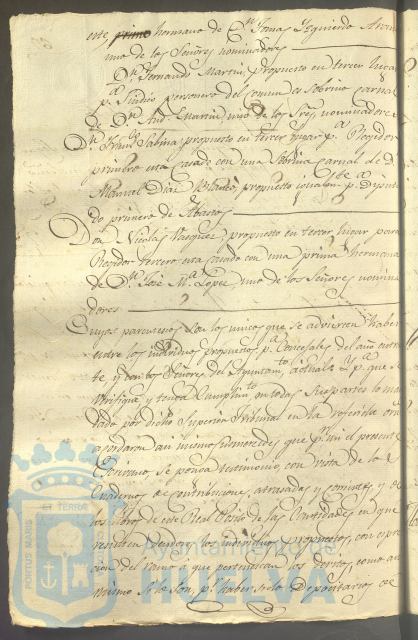 este primo hermano de Dn. Tomas Izquierdo Alon
uno de los Señores nominadores
Dn. Fernando Martin, propuesto en tercer lugar
pa. Sindico personero del comun es Sobrino carnal
de Dn. Anto. Martin, uno de los Sres. nominadores
Dn. Franco. Sabina propuesto en tercer lugar pa. Regidor
primero esta casado con una Sobrina carnal de D.
Manuel Diaz Blanco, propuesto igualmte. pa. Diputa
do primero de Abastos
Don Nicolas Vazquez, propuesto en tercer lugar para
Regidor tercero esta casado con una prima hermana
de Dn. Jose Ma. Lopez, uno de los Señores nomina
dores
Cuyos parentescos son los unicos que se advierten haber
entre los individuos propuestos pa. Concejales del año entran
te, y con los Señores del Ayuntamto. actual: Y pa. que se
verifique y tenga cumplimto. en todas sus partes lo man
dado por dicho Superior Tribunal en la referida orn.
acordaron asi mismo sus mercedes, que pr. mi el presente
Escribano, se ponga testimonio, con vista de los
Cuadernos de contribuciones, atrasadas y corrientes, y de
los libros de este Real Posito de las Cantidades en que
resulten deudores los individuos propuestos, con espre
cion del ramo a que pertenezcan los devitos, como asi
mismo si lo son, pr. haber sido Depositarios de
PORTUS MARIS ET TERRAE
Ayuntamiento de
HUELVA